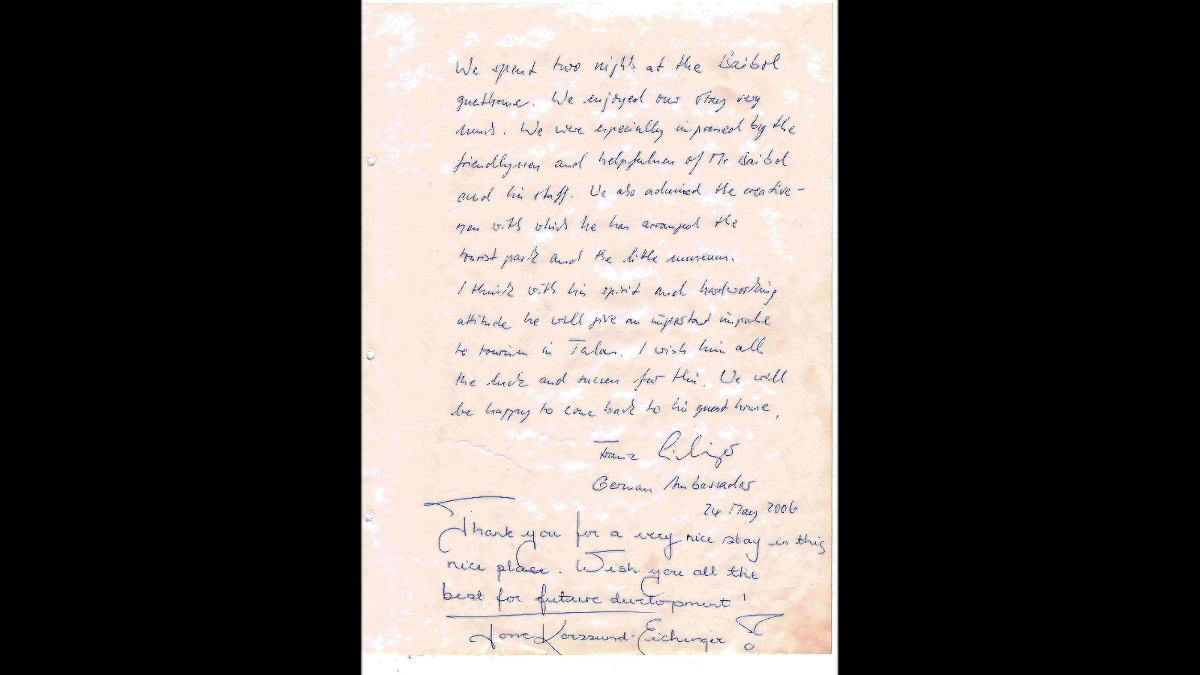 We spent two nights at the Baibol
guesthouse. We enjoyed our stay very
much. We were especially impressed by the
friendlyness and helpfulness of Mr Baibol
and his staff. We also admired the creative-
ness with which he has arranged the
tourist park and the little museum.
I think with his spirit and hardworking
attitude he will give an important impulse
to tourism in Talas. I wish him all
the luck and success for this. We will
be happy to come back to his guesthouse,
Franz
German Ambassador
24 May 2006
Thank you for a very nice stay in this
nice place. Wish you all the
best for future development!
Eichinger